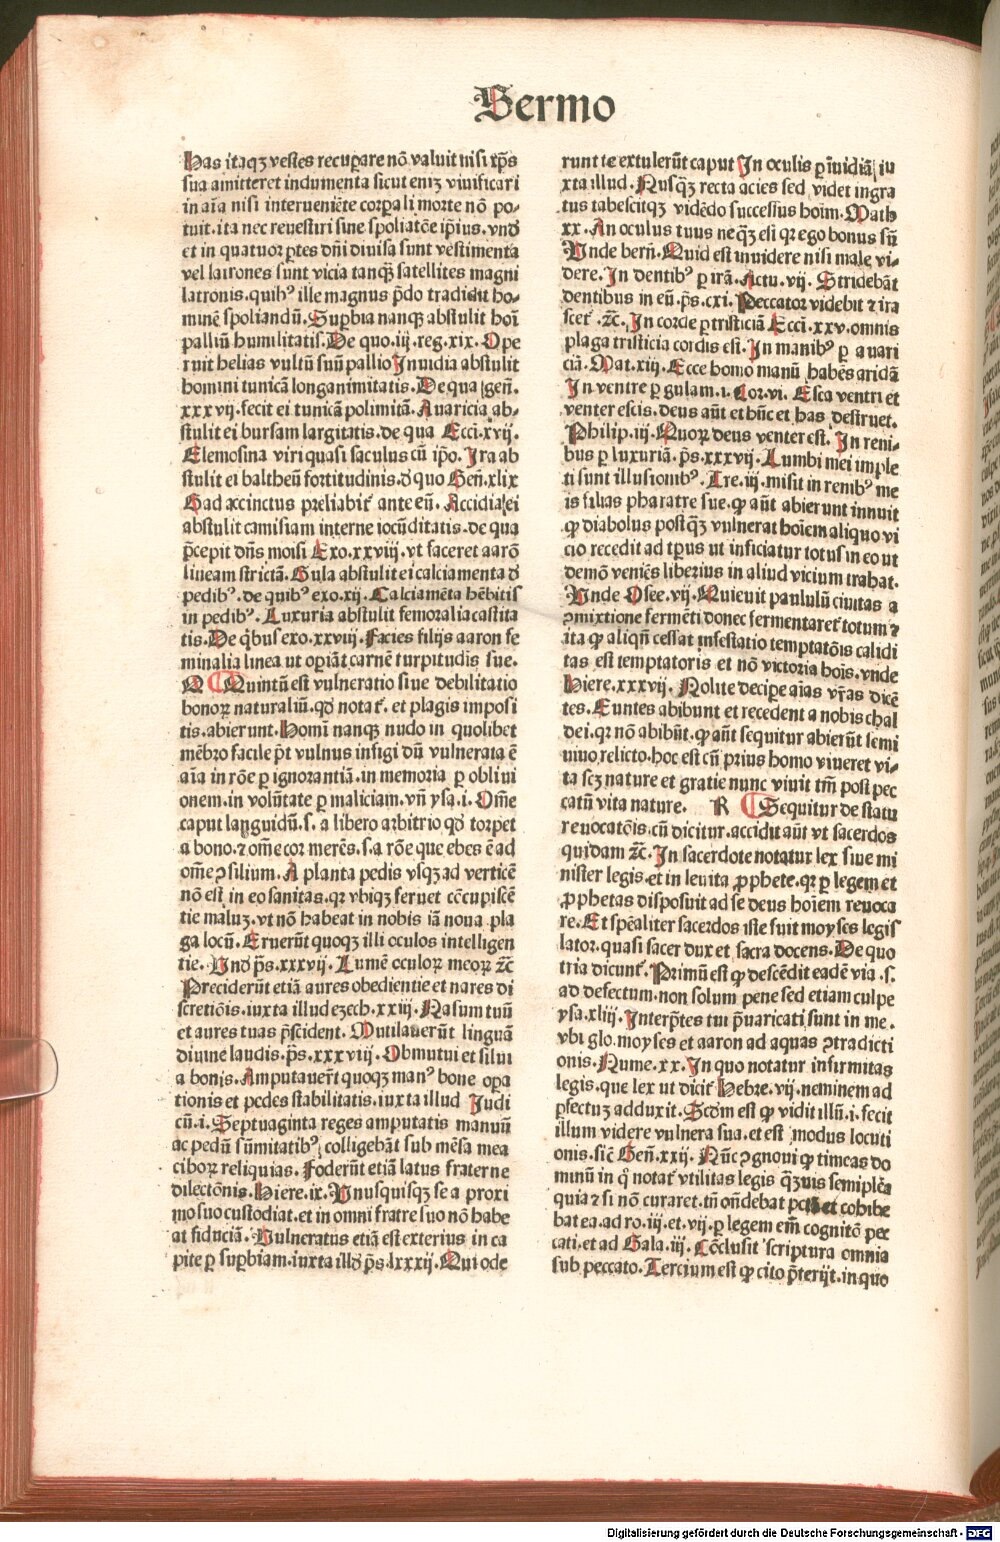 Sermo
Has itaqꝫ vestes recuꝑare nō valuit nisi xp̄s
sua amitteret indumenta sicut eniꝫ viuificari
in aīa nisi interueniēte corꝑali morte nō po-
tuit. ita nec reuestiri sine spoliatōe ip̄ius. vnđ
et in quatuor ꝑtes dn̄i diuisa sunt vestimenta
vel latrones sunt vicia tanqꝫ satellites magni
latronis. quibꝰ ille magnus p̄do tradidit ho-
minē spoliandū. Suꝑbia nanqꝫ abstulit hoī
palliū humilitatis. De quo .iij. reg. xix. Ope
ruit helias vultū suū pallio Inuidia abstulit
homini tunicā longanimitatis. De qua gen̄.
xxxvij. fecit ei tunicā polimitā. Auaricia ab-
stulit ei bursam largitatis. de qua Ecci. xvij.
Elemosina viri quasi saculus cū ip̄o. Ira ab
stulit ei baltheū fortitudinis. đ quo Gen̄. xlix
Gad accinctus preliabit᷑ ante eū. Accidia ei
abstulit camisiam interne iocūditatis. de qua
p̄cepit dn̄s moisi Exo. xxviij. vt faceret aarō
lineam strictā. Gula abstulit ei calciamenta đ
pedibꝰ. de quibꝰ exo. xij. Calciamēta hēbitis
in pedibꝰ. Luxuria abstulit femoralia castita
tis. De qͥbus exo. xxviij. Facies filijs aaron fe
minalia linea ut opiāt carnē turpitudis sue.
Q ¶ Quintū est vulneratio siue debilitatio
bonoꝝ naturaliū. qđ notat᷑. et plagis imposi
tis. abierunt. Homī nanqꝫ nudo in quolibet
mēbro facile p̄t vulnus infigi dū vulnerata ē
aīa in rōe ꝑ ignorantiā. in memoria ꝑ obliui
onem. in volūtate ꝑ maliciam. vn̄ ysa. i. Om̄e
caput languidū. s. a libero arbitrio qđ torpet
a bono. ⁊ om̄e cor merēs. s. a rōe que ebes ē ad
om̄e ↄsilium. A planta pedis vsqꝫ ad verticē
nō est in eo sanitas. qꝛ vbiqꝫ feruet cōcupiscē
tie maluꝫ. vt nō habeat in nobis iā noua pla
ga locū. Eruerūt quoqꝫ illi oculos intelligen
tie. Vnđ p̄s. xxxvij. Lumē oculoꝝ meoꝝ ⁊c̄
Preciderūt etiā aures obedientie et nares di
scretiōis. iuxta illud ezech. xxiij. Nasum tuū
et aures tuas p̄scident. Mutilauerūt linguā
diuine laudis. p̄s. xxxviij. Obmutui et silui
a bonis. Amputauer̄t quoqꝫ manꝰ bone oꝑa
tionis et pedes stabilitatis. iuxta illud Judi
cū. i. Septuaginta reges amputatis manuū
ac pedū sūmitatibꝰ colligebāt sub mēsa mea
ciboꝝ reliquias. Foderūt etiā latus fraterne
dilectōnis. Hiere. ix. Vnusquisqꝫ se a proxi
mo suo custodiat. et in omni fratre suo nō habe
at fiduciā. Vulneratus etiā est exterius in ca
pite ꝑ suꝑbiam. iuxta illđ p̄s. lxxxij. Qui ode
runt te extulerūt caput In oculis ꝑ īuidiā iu
xta illud. Nusqꝫ recta acies sed videt ingra
tus tabescitqꝫ vidēdo successus hoīm. Math
xx. An oculus tuus neqꝫ est qꝛ ego bonus sū
Vnde bern̄. Quid est inuidere nisi male vi-
dere. In dentibꝰ ꝑ irā. Actu. vij. Stridebāt
dentibus in eū. p̄s. cxi. Peccator videbit ⁊ ira
scet᷑. ⁊c̄. In corde ꝑ tristiciā Ecci. xxv. omnis
plaga tristicia cordis est. In manibꝰ ꝑ auari
ciā. Mat. xij. Ecce homo manū habēs aridā
In ventre ꝑ gulam. i. Cor. vi. Esca ventri et
venter escis. deus aūt et hūc et has destruet.
Philip. iij. Quoꝝ deus venter est. In reni-
bus ꝑ luxuriā. p̄s. xxxvij. Lumbi mei imple
ti sunt illusionibꝰ. Tre. iij. misit in renibꝰ me
is filias pharatre sue. ꝙ aūt abierunt innuit
ꝙ diabolus postqꝫ vulnerat hoīem aliquo vi
cio recedit ad tp̄us ut inficiatur totus in eo ut
demō veniēs liberius in aliud vicium trahat.
Vnde Osee. vij. Quieuit paululū ciuitas a
ↄmixtione fermēti donec fermentaret᷑ totum ⁊
ita ꝙ aliqn̄ cessat infestatio temptatōis calidi
tas est temptatoris et nō victoria hoīs. vnde
Hiere. xxxvij. Nolite deciꝑe aīas vr̄as dicē
tes. Euntes abibunt et recedent a nobis chal
dei. qꝛ nō abibūt. ꝙ aūt sequitur abierūt semi
uiuo relicto. hoc est cū prius homo viueret vi-
ta scꝫ nature et gratie nunc viuit tm̄ post pec
catū vita nature. R ¶ Sequitur de statu
reuocatōis. cū dicitur. accidit aūt vt sacerdos
quidam ⁊c̄. In sacerdote notatur lex siue mi
nister legis. et in leuita ꝓphete. qꝛ ꝑ legem et
ꝓphetas disposuit ad se deus hoīem reuoca
re. Et sp̄ealiter sacerdos iste fuit moyses legis
lator. quasi sacer dux et sacra docens. De quo
tria dicunt᷑. Primū est ꝙ descēdit eadē via. s.
ad defectum. non solum pene sed etiam culpe
ysa. xliij. Interp̄tes tui p̄uaricati sunt in me.
vbi glo. moyses et aaron ad aquas ↄtradicti
onis. Nume. xx. In quo notatur infirmitas
legis. que lex ut dicit᷑ Hebre. vij. neminem ad
ꝑfectuꝫ adduxit. Scđm est ꝙ vidit illū. i. fecit
illum videre vulnera sua. et est modus locuti
onis. sic̄ Gen̄. xxij. Nūc ↄgnoui ꝙ timeas do
minū in qͦ notat᷑ vtilitas legis qꝫuis semiplēa
quia ⁊ si nō curaret. tn̄ on̄debat pctā et cohibe
bat ea. ad ro. iij. et. vij. ꝑ legem em̄ cognitō pec
cati. et ad Gala. iij. Cōclusit scriptura omnia
sub peccato. Tercium est ꝙ cito p̄terijt. in quo
Digitalisierung gefördert durch die Deutsche Forschungsgemeinschaft - DFG